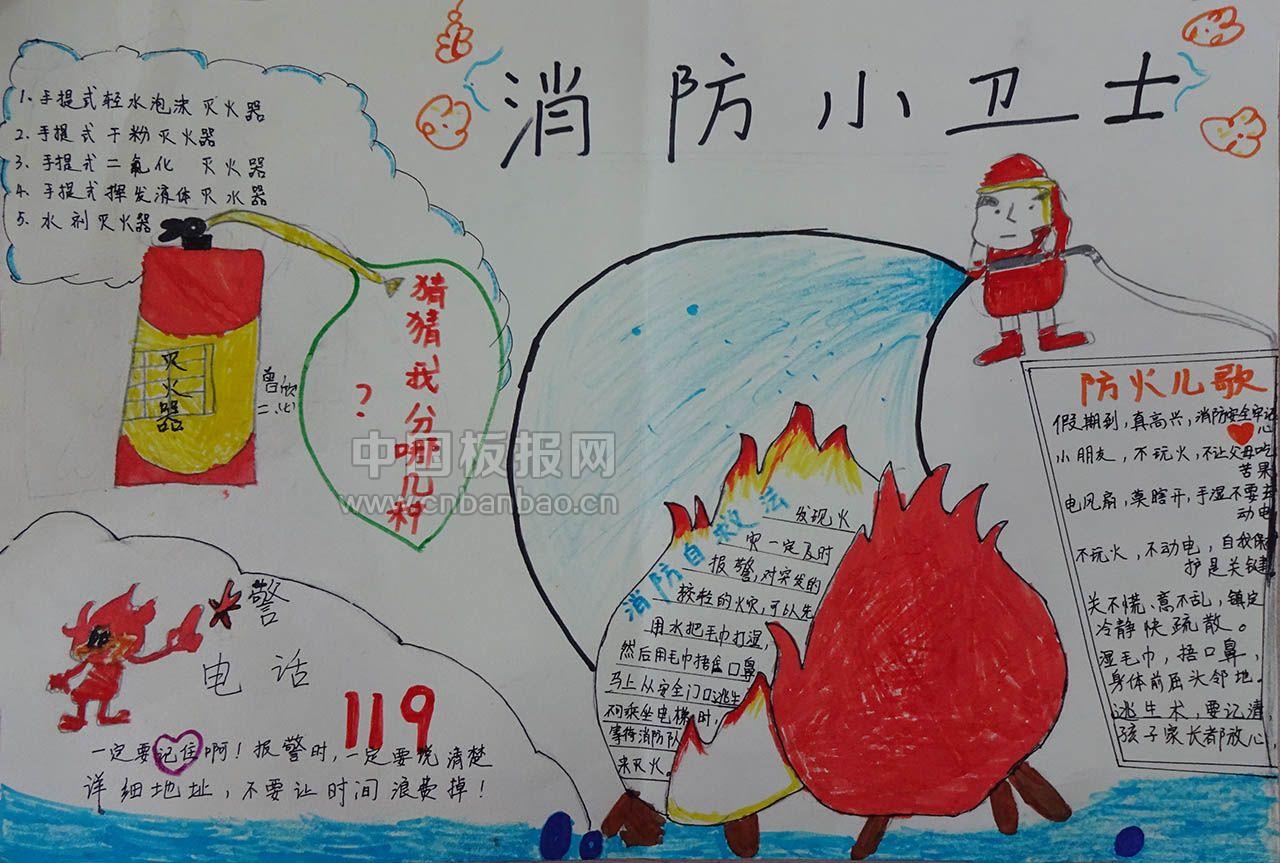 消防小卫士
1、手提式轻水泡沫灭火器
2、手提式干粉灭火器
3、手提式二氧化 灭火器
4、手提式挥发液体灭火器
5、水剂灭火器
灭火器
猜猜我分哪几种
？
中国板报网
www.cnbanbao.cn
火警
电话
119
一定要记住啊！报警时，一定要说清楚
详细地址，不要让时间浪费掉！
消防自救法
发现火
灾一定及时
报警，对突发的
较轻的火灾，可以先
用水把毛巾打湿，
然后用毛巾捂盖口鼻
马上从安全门口逃生
不乘坐电梯，时，
等待消防队
来灭火。
防火儿歌
假期到，真高兴，消防安全牢记
心
小朋友，不玩火，不让父母吃
苦果
电风扇，莫瞎开，手湿不要去
动电
不玩火，不动电，自我保
护是关键
关不慌、意不乱，镇定
冷静快疏散。
湿毛巾，捂口鼻，
身体前屈头邻地。
逃生术，要记清
孩子家长都放心